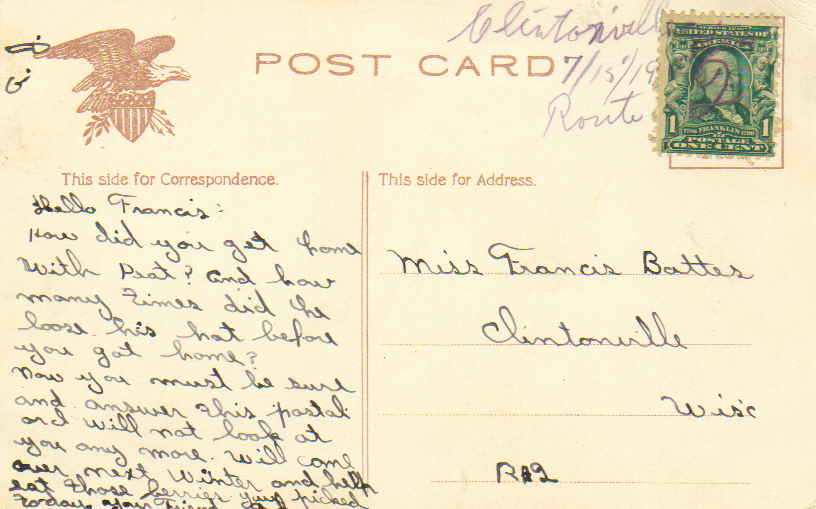 Clintonville
7/15/19
Route
POST CARD
UNITED STATES OF
AMERICA
1706 FRANKLIN 1790
1 POSTAGE 1
ONE CENT
This side for Correspondence.
This side for Address.
Hello Francis:
How did you get home
With Peat? and how
many times did the
loose his hat before
you got home?
Now you must be sure
and answer this postal
ord will not look at
you any more. Will come
over next Winter and help
eat those berries you picked
today. your Friend
Miss Francis Battes
Clintonville
Wisc
R#2